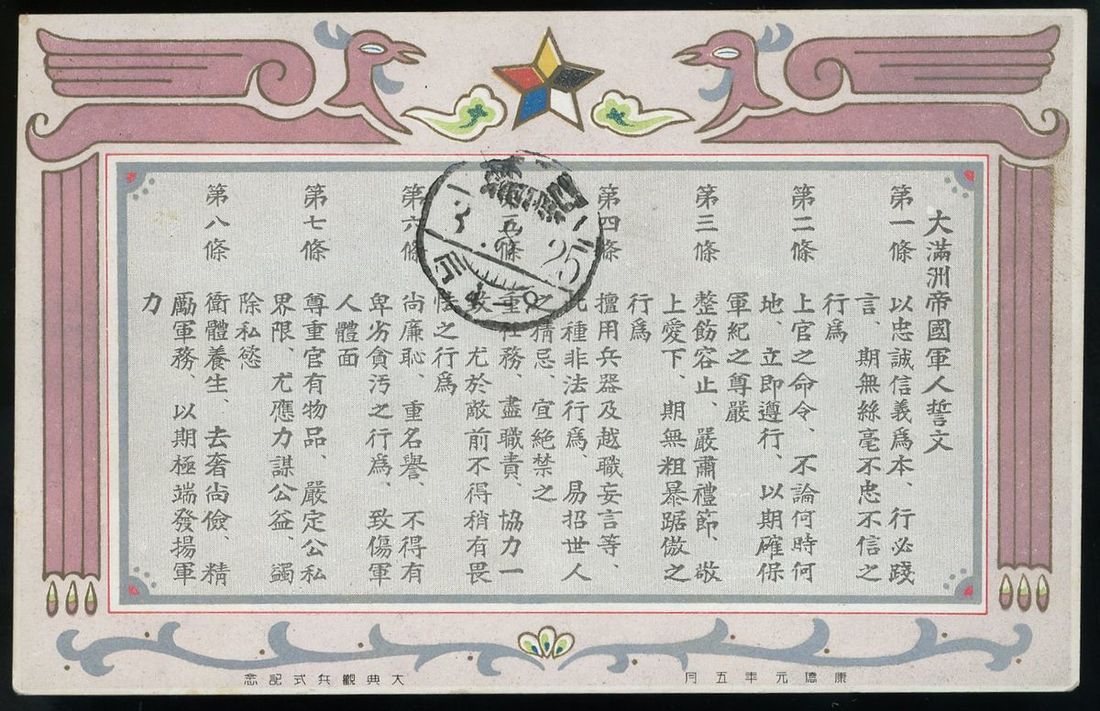 大滿洲帝國軍人誓文
第一條 以忠誠信義爲本、行必踐
言、期無絲毫不忠不信之
行爲
第二條 上官之命令、不論何時何
地、立即遵行、以期確保
軍紀之尊嚴
第三條 整飭容止、嚴肅禮節、敬
上愛下、期無粗暴踞傲之
行爲
第四條 擅用兵器及越職妄言等、
此種非法行爲、易招世人
之猜忌、宜絶禁之
第五條 重任務、盡職責、協力一
致 尤於敵前不得稍有畏
怯之行爲
第六條 尚廉恥、重名譽、不得有
卑劣貪汚之行爲、致傷軍
人體面
第七條 尊重官有物品、嚴定公私
界限、尤應力謀公益、蠲
除私慾
第八條 衛體養生、去奢尚儉、精
勵軍務、以期極端發揚軍
力
康德元年五月
大典觀兵式記念
3
25